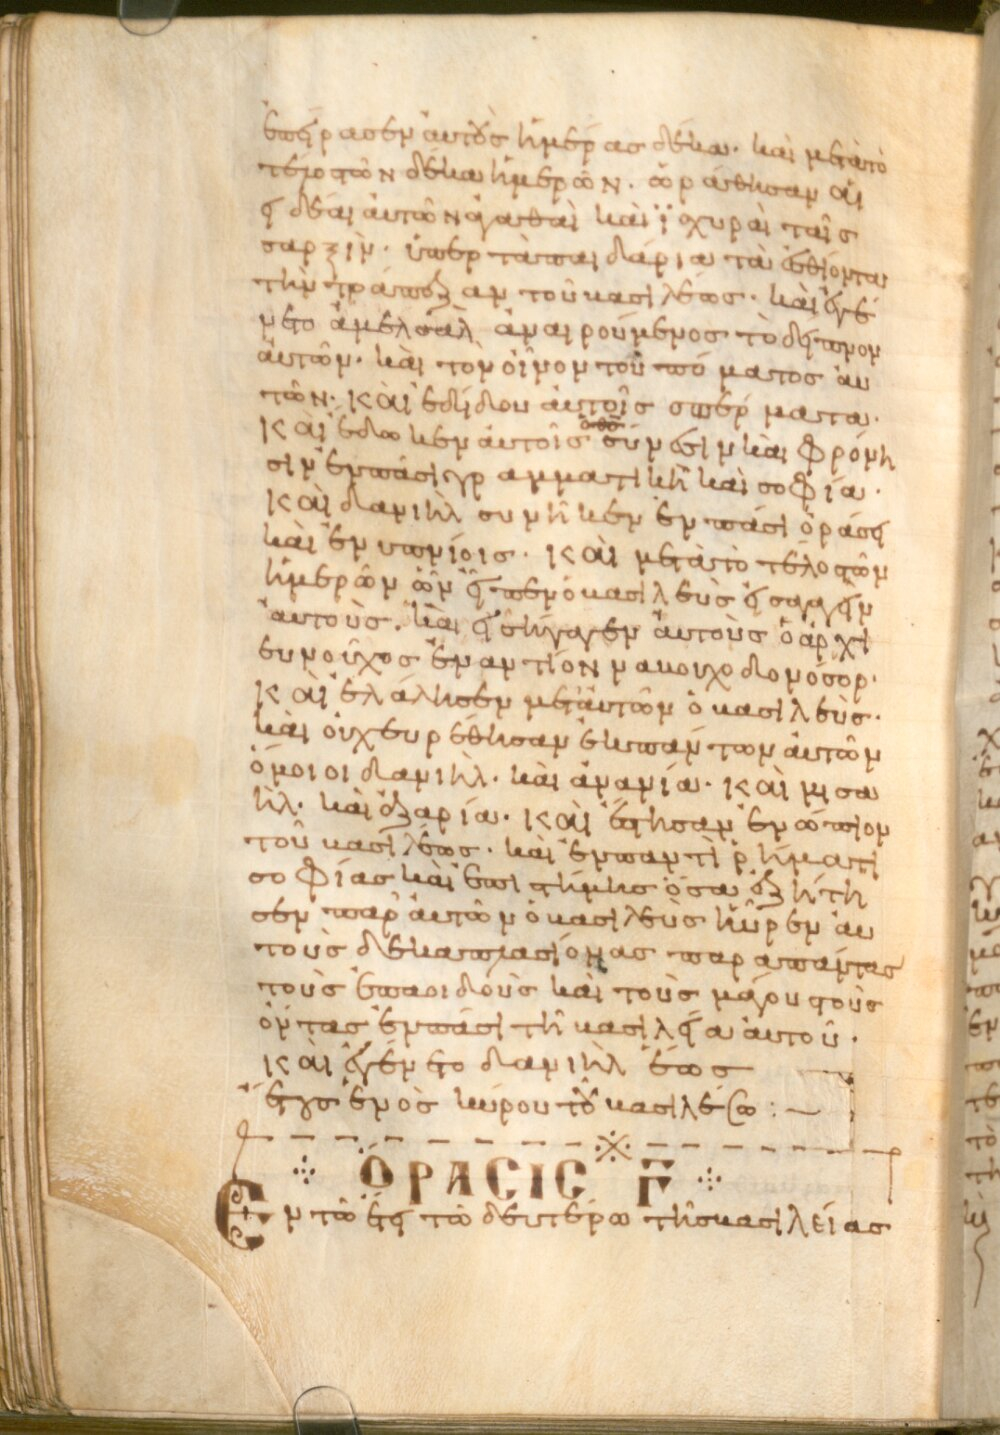 ἐπείρασεν ἀυτοὺς ἡμέρας δέκα· καὶ μετὰ τὸ
τέλος τῶν δέκα ἡμερῶν· ὡράθησαν ἁι
εἰδέαι ἀυτῶν ἀγαθαὶ καὶ ϊσχυραὶ ταῖς
σαρξὶν· ὑπὲρ τὰ παιδάρια τὰ ἐσθίοντα
τὴν τράπεζαν τοῦ βασιλέως· καὶ ἐγέ
νετο ἀμελσὰλ ἀναιρούμενος τὸ δεῖπνον
ἀυτῶν· καὶ τὸν οἶνον τοῦ πόματος ἀυ
τῶν· καὶ ἐδίδου ἀυτοῖς σπέρματα·
καὶ ἔδωκεν ἀυτοῖς ὁ θσ σύνεσιν καὶ φρόνη
σιν ἐν πάσι γραμματικῆ καὶ σοφία·
καὶ δανιὴλ συνῆκεν ἐν πάσι ὁράσει
καὶ ἐνυπνίοις· καὶ μετὰ τὸ τέλος τῶν
ἡμερῶν ὧν εἶπεν ὁ βασιλεὺς εἰσαγαγεῖν
ἀυτοὺς· καὶ εἰσήγαγεν ἀυτοὺς ὁ ἀρχι
ευνοῦχος ἐναντίον ναβουχοδονόσορ·
καὶ ἐλάλησεν μετ ἀυτῶν ὁ βασιλεὺς·
καὶ ὀυχ ευρέθησαν ἐκ πάντων ἀυτῶν
ὅμοιοι δανιὴλ· καὶ ἀνανία· καὶ μισα
ὴλ· καὶ ἀζαρία· καὶ ἔστησαν ἐνώπιον
τοῦ βασιλέως· καὶ ἐν παντὶ ῥήματι
σοφίας καὶ ἐπιστήμης ὅσα ἐζήτη
σεν παρ ἀυτῶν ὁ βασιλεὺς ηὗρεν ἀυ
τοὺς δεκαπλασίονας παρα πάντας
τοὺς ἐπαοιδοὺς καὶ τοὺς μάγους τοὺς
ὄντας ἐν πάσι τῆ βασιλεία ἀυτοῦ·
καὶ ἐγένετο δανιὴλ ἕως
ἔτους ἑνὸς κύρου τοῦ βασιλέως :—
ὍΡΑΣΙΣ Γ
Εν τῶ ἔτει τῶ δευτέρω τῆς βασιλείας